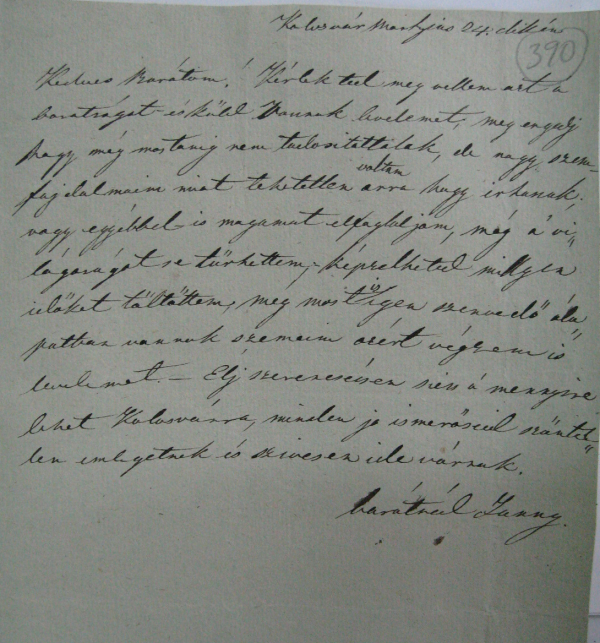 Kolosvár Martzius 24. dikén
390
Kedves Barátom! Kérlek tedd meg velem azt a
barátságot és küld Vannak levelemet, meg engedj
hogy még mostanig nem tudositottalak, de nagy szem-
fájdalmaim miat tehetetlen voltam arra hogy irhanak,
vagy egyébbel is magamat elfoglaljam, még a vi-
lágoságot se türhettem, képzelheted millyen
időket töltöttem, még most is igen szenvedő álla
potban vannak szemeim azért végzem is
levelemet. – Élj szerencsésen siess a mennyire
lehet Kolosvárra, minden jo ismerőseid szüntel
len emlegetnek és szivesen ide várnak.
barátnéd Zsanny.